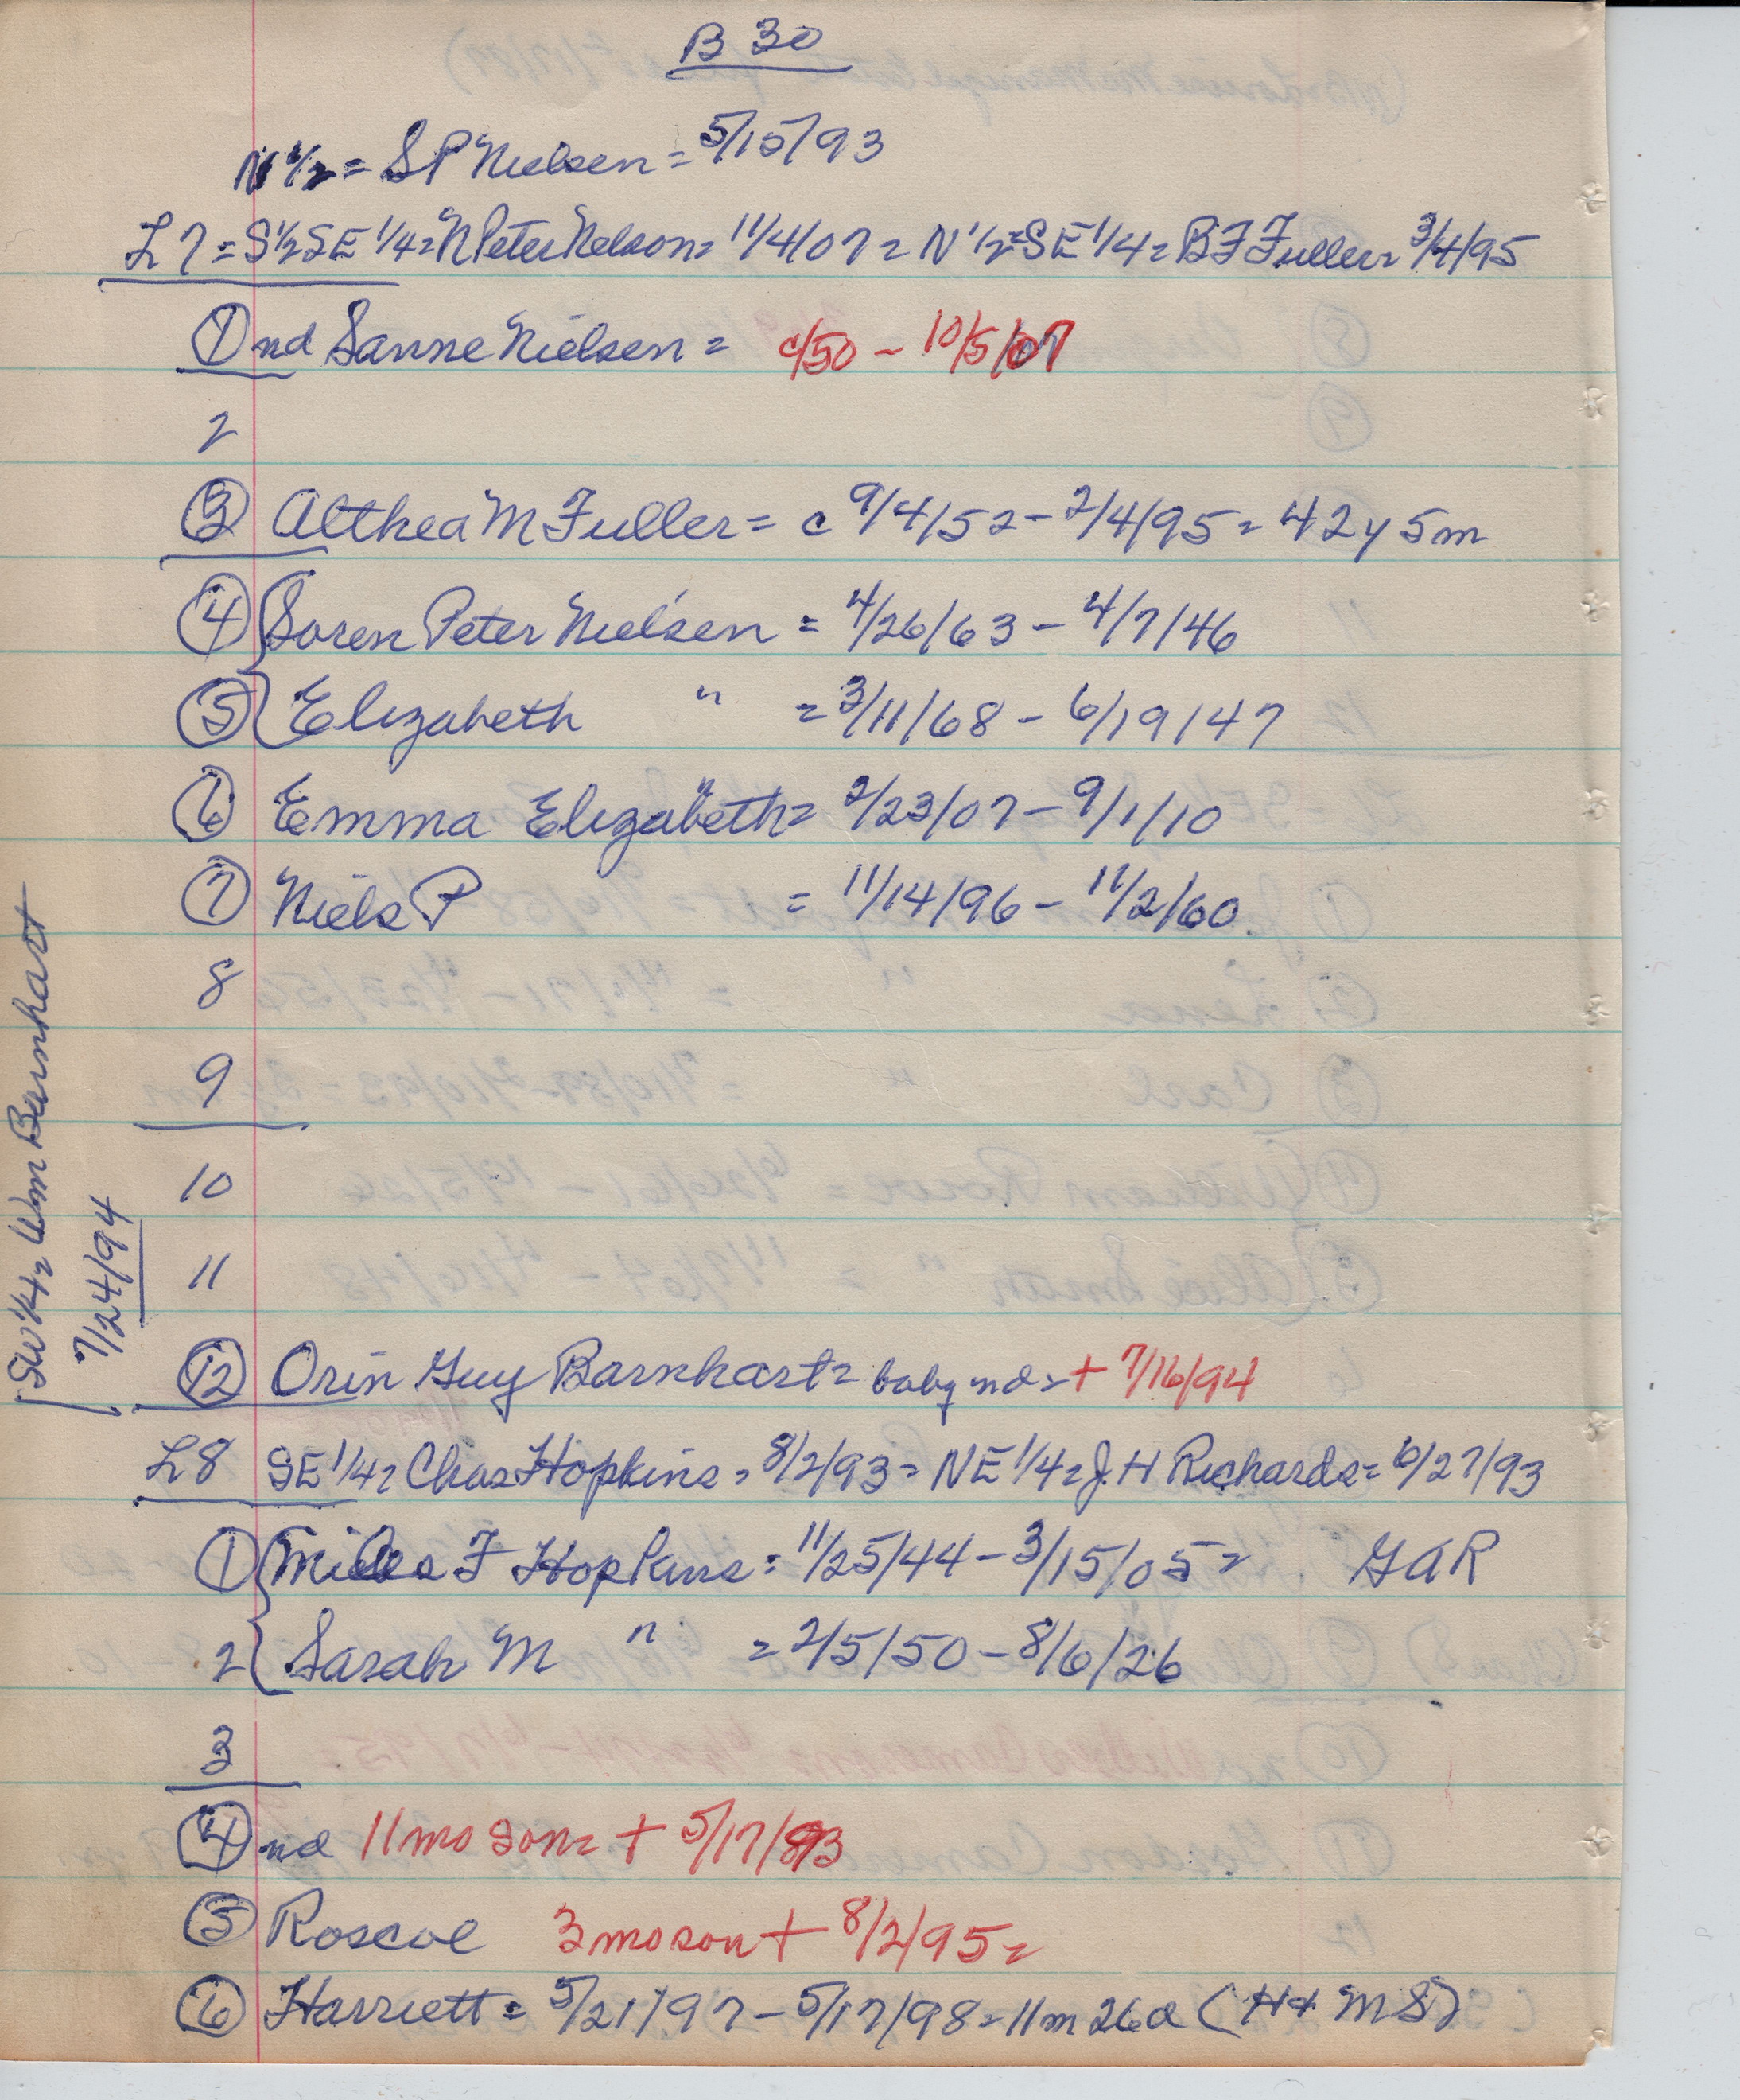 B 30
N 1/2 = S P Nielsen = 5/15/93
L 7 = S 1/2 SE 1/4 = N Peter Nelson = 11/4/07 = N 1/2 = SE 1/4 = B F Fuller = 3/4/95
① nd Sanne Nielsen = c/50 - 10/5/07
2
③ Althea M Fuller = c 9/4/52 - 2/4/95 = 42y 5m
④ Soren Peter Nielsen = 4/26/63 - 4/7/46
⑤ Elizabeth " = 3/11/68 - 6/19/47
⑥ Emma Elizabeth " = 2/23/07 - 9/1/10
⑦ Niels P = 11/14/96 - 11/2/60
8
9
10
11
SW 1/4 = Wm Barnhart
7/24/94
⑫ Orin Guy Barnhart = baby nd = + 7/16/94
L 8 SE 1/4 = Chas Hopkins = 8/2/93 = NE 1/4 = J. H Richards = 6/27/93
① Miles F Hopkins = 11/25/44 - 3/15/05 = GAR
2 Sarah M " = 2/5/50 - 8/6/26
3
④ nd 11 mo son = + 5/17/93
⑤ Roscoe 3 mo son + 8/2/95 =
⑥ Harriett = 5/21/97 - 5/17/98 = 11m 26d (H + M S)